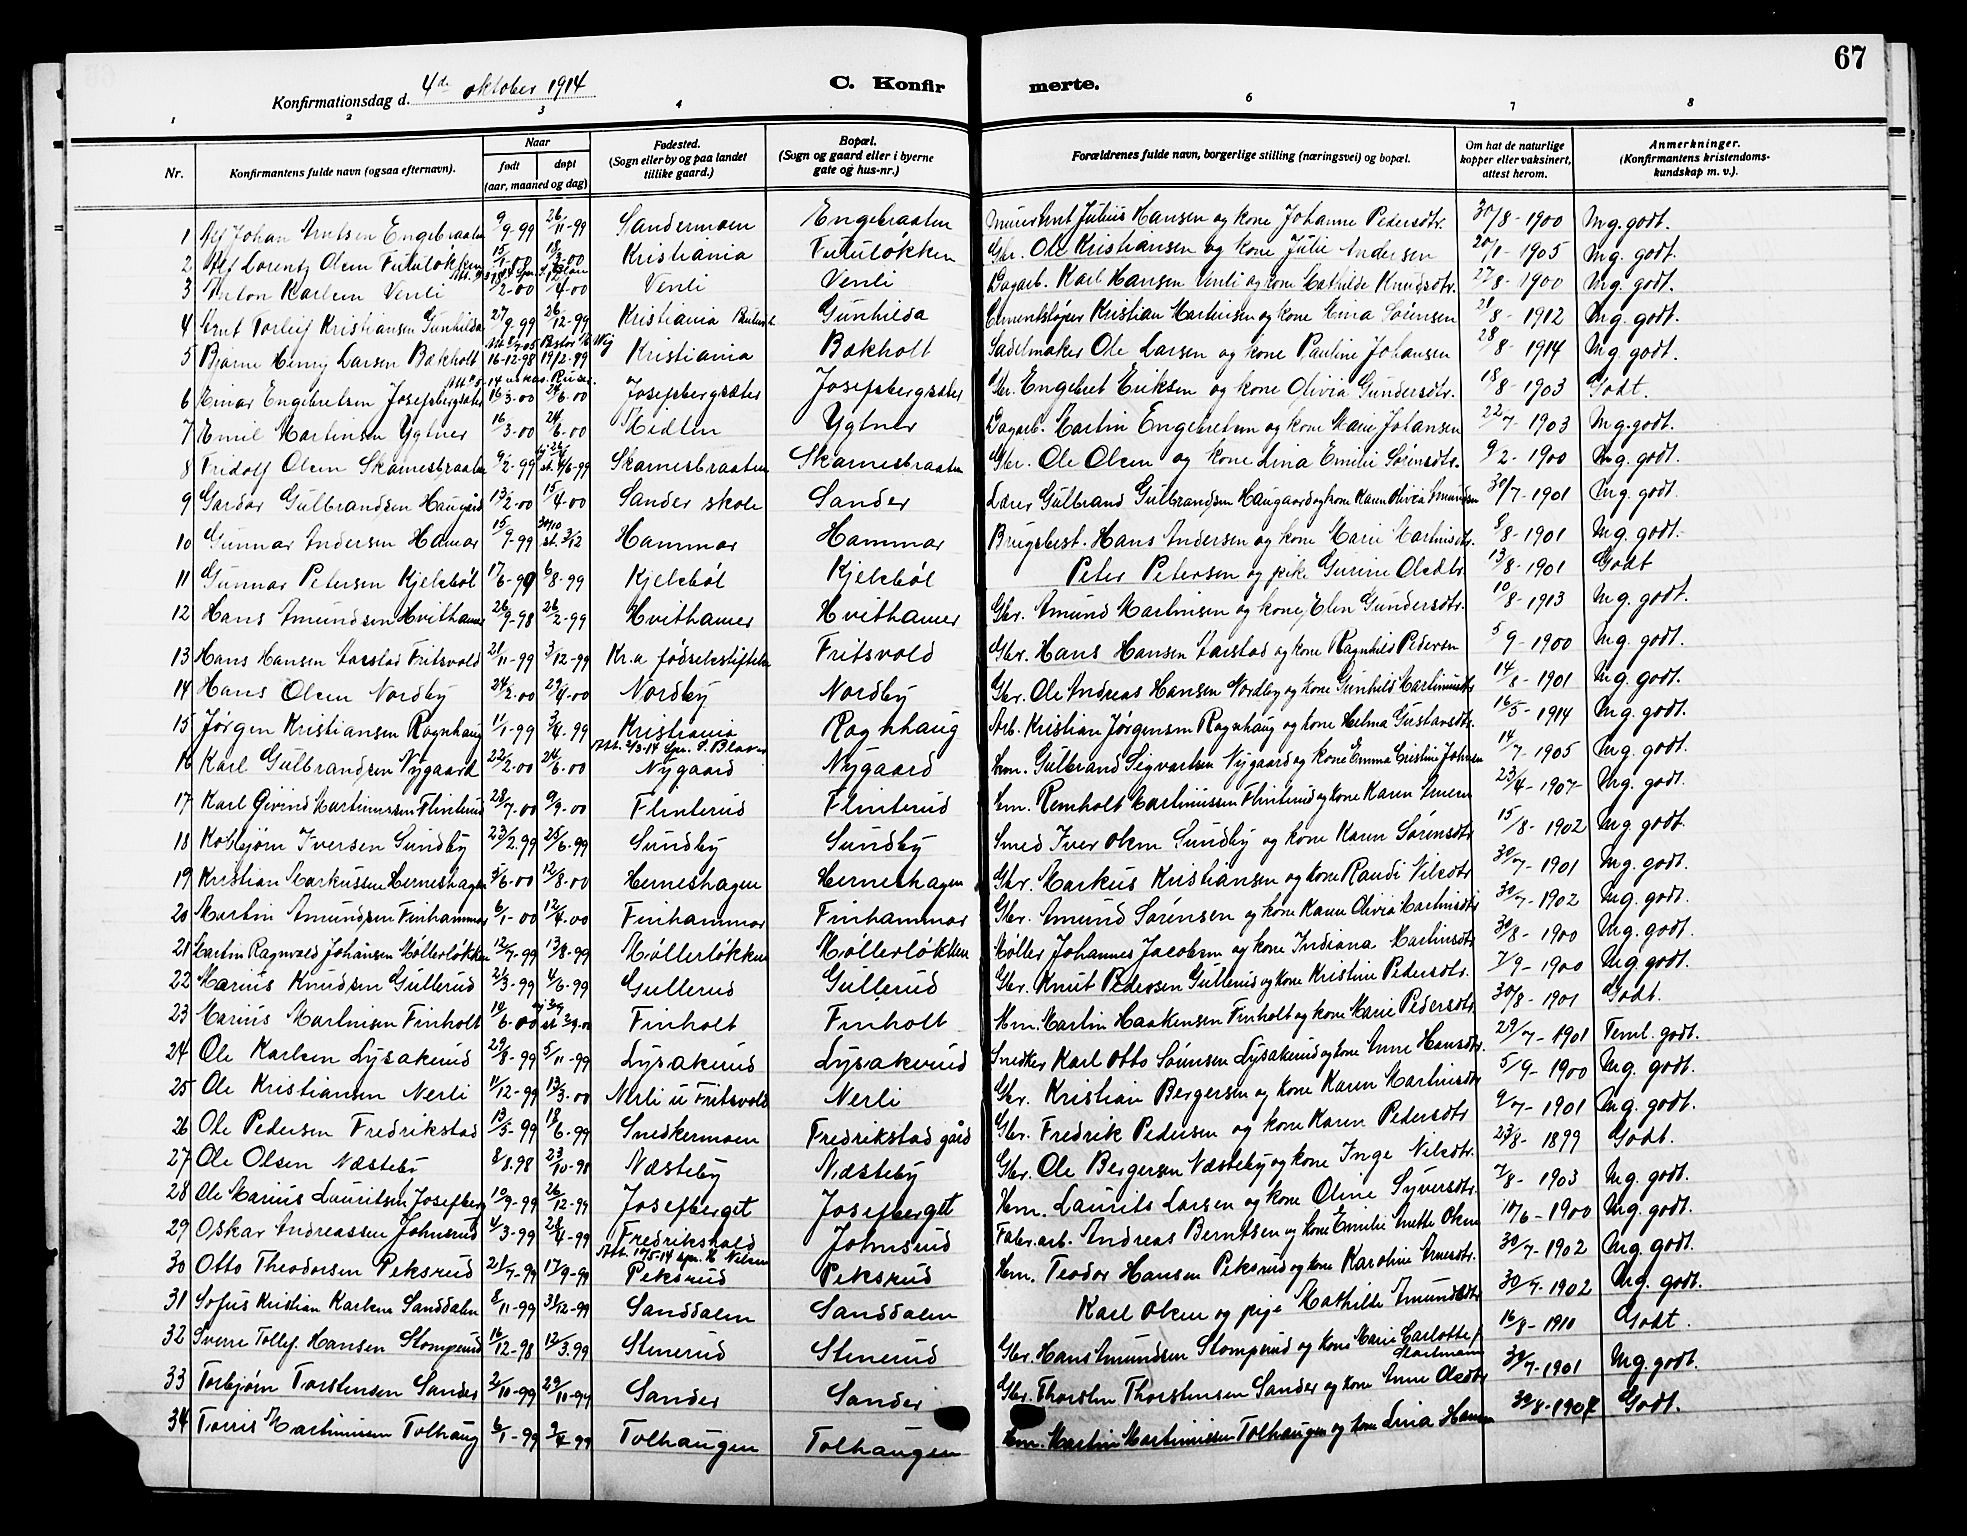 67
Konfirmationsdag d. 4de oktober 1914 C. Konfirmerte.
1 2 3 4 6 7 8
Nr. Konfirmantens fulde navn (ogsaa efternavn). Naar født døpt (aar, maaned og dag) Fødested. (Sogn eller by og paa landet tillike gaard.) Bopæl. (Sogn og gaard eller i byerne gate og hus-nr.) Forældrenes fulde navn, borgerlige stilling (næringsvei) og bopæl. Om hat de naturlige kopper eller vaksinert, attest herom. Anmerkninger. (Konfirmantens kristendomskundskap m. v.).
1 Alf Johan Arntsen Engebraaten 9/9-99 26/11-99 Sandermoen Engebraaten Murer Arnt Julius Hansen og kone Johanne Pedersdtr. 30/8-1900 Mg. godt.
2 Alf Lorentz Olsen Fululøkken 15/1-00 18/3-00 Kristiania Fululøkken Gbr. Ole Kristiansen og kone Julie Andersen 20/1-1905 Mg. godt.
3 Anton Karlsen Venli /2-00 /4-00 Venli Venli Dagarb. Karl Hansen Venli og kone Mathilde Knudsdtr. 27/8-1900 Mg. godt.
4 Arnt Torleif Kristiansen Gunhilda 27/9-99 26/12-99 Kristiania Gunhilda Cementstøper Kristian Martinsen og kone Mina Sørensen 21/8-1912 Mg. godt.
5 Bjarne Henry Larsen Bakholt 16-12-98 19/2-99 Kristiania Bakholt Sadelmaker Ole Larsen og kone Pauline Johansen 28/8-1914 Mg. godt.
6 Einar Engebretsen Josefsbergsæter 16/3-00 24/6-00 Josefsbergsæter Josefsbergsæter Gbr. Engebret Eriksen og kone Olivia Gundersdtr. 18/8-1903 Godt.
7 Emil Martinsen Ygtner 16/3-00 24/6-00 Midten Ygtner Dagarb. Martin Engebretsen og kone Marie Johansen 22/7-1903 Mg. godt.
8 Fridolf Olsen Skarnesbraaten 9/2-99 st. /6-99 Skarnesbraaten Skarnesbraaten Gbr. Ole Olsen og kone Lina Emilie Sørensdtr. 9/2-1900 Mg. godt.
9 Gardar Gulbrandsen Haugård 13/2-00 15/4-00 Sander skole Sander Lærer Gulbrand Gulbrandsen Haugaard og kone Karen Olivia Amundsen 30/7-1901 Mg. godt.
10 Gunnar Andersen Hamar 15/9-99 30/10 st. 3/12 Hammar Hammar Brugsbest. Hans Andersen og kone Marie Martinsdtr. 8/8-1901 Mg. godt.
11 Gunnar Petersen Kjelsbøl 17/6-99 6/8-99 Kjelsbøl Kjelsbøl Peter Petersen og pike Gurine Olsdtr. 13/8-1901 Godt
12 Hans Amundsen Hvithamer 26/9-98 26/2-99 Hvithamer Hvithamer Gbr. Amund Martinsen og kone Elen Gundersdtr. 10/8-1913 Mg. godt.
13 Hans Hansen Aarstad Fritsvold 21/11-99 3/12-99 Kr.a fødselsstiftelse Fritsvold Gbr. Hans Hansen Aarstad og kone Ragnhild Pedersen 5/9-1900 Mg. godt.
14 Hans Olsen Nordby 24/2-00 29/4-00 Nordby Nordby Gbr. Ole Andreas Hansen Nordby og kone Gunhild Martinusdtr 14/8-1901 Mg. godt.
15 Jørgen Kristiansen Rognhaug 11/1-99 3/4-99 Kristiania Rognhaug Arb. Kristian Jørgensen Rognhaug og kone Helma Gustavsdtr. 16/5-1914 Mg. godt.
16 Karl Gulbrandsen Nygaard 22/2-00 24/6-00 Nygaard Nygaard Hm. Gulbrand Sigvartsen Nygaard og kone Emma Cristine Johnsen 14/7-1905 Mg. godt.
17 Karl Eivind Martinussen Flinterud 28/7-00 9/9-00 Flinterud Flinterud Hm. Remholt Martinussen Flinterud og kone Karen Arnesen 23/4-1907 Mg. godt.
18 Kolbjørn Iversen Sundby 23/2-99 25/6-99 Sundby Sundby Smed Iver Olsen Sundby og kone Karen Sørensdtr 15/8-1902 Mg godt.
19 Kristian Markussen Herneshagen 3/6-00 12/8-00 Herneshagen Herneshagen Gbr. Markus Kristiansen og kone Randi Nilsdtr. 30/7-1901 Mg. godt.
20 Martin Amundsen Finhammar 6/1-00 12/4-00 Finhammar Finhammar Gbr. Amund Sørensen og kone Karen Olivia Martinsdtr 30/7-1902 Mg. godt.
21 Martin Ragnvald Johansen Møllerløkken 12/7-99 13/8-99 Møllerløkken Møllerløkken Møller Johannes Jacobsen og kone Indiana Martinsdtr 30/8-1900 Mg. godt.
22 Marius Knudsen Gullerud 2/3-99 4/6-99 Gullerud Gullerud Gbr. Knut Pedersen Gullerud og kone Kristine Pedersdtr. 7/9-1900 Mg. godt.
23 Marius Martinsen Finholt 10/6-00 st. Finholt Finholt Hm. Martin Haakensen Finholt og kone Marie Pedersdtr. 30/8-1901 Godt.
24 Ole Karlsen Lysakerud 29/8-99 5/11-99 Lysakerud Lysakerud Snedker Karl Otto Sørensen Lysakerud og kone Anne Hansdtr. 29/7-1901 Teml. godt.
25 Ole Kristiansen Nerli 11/12-99 13/3-00 Nerli u Fritsvold Nerli Gbr. Kristian Bergersen og kone Karen Martinsdtr 5/9-1900 Mg. godt.
26 Ole Pedersen Fredrikstad 13/5-99 18/6-99 Snedkermoen Fredrikstad gård Gbr. Fredrik Pedersen og kone Karen Pedersdtr 9/7-1901 Mg. godt.
27 Ole Olsen Næsteby 8/8.98 23/10-98 Næsteby Næsteby Gbr. Ole Bergersen Næsteby og kone Inge Nilsdtr. 23/8-1899 Godt.
28 Ole Marius Lauritsen Josefberg 10/9-99 26/12-99 Josefberget Josefberget Hm. Laurits Larsen og kone Oline Syversdtr. 7/8-1903 Mg. godt.
29 Oskar Andreassen Johnsrud 4/3-99 28/4-99 Fredrikshald Johnsrud Fabr. arb. Andreas Berntsen og kone Emilie Anette Olsen 10/6-1900 Mg. godt.
30 Otto Theodorsen Peksrud 21/7-99 17/9-99 Peksrud Peksrud Hm. Teodor Hansen Peksrud og kone Karoline Arnesdtr. 30/7-1902 Mg. godt.
31 Sofus Kristian Karlsen Sanddalen 8/11-99 31/12-99 Sanddalen Sanddalen Karl Olsen og pige Mathilde Amundsdtr 30/7-1902 Mg. godt.
32 Sverre Tollef. Hansen Stomperud 16/12-98 12/3.99 Stenerud Stenerud Gbr. Hans Amundsen Stomperud og kone Marie Carlotte Martmann 16/8-1910 Godt.
33 Torbjørn Torstensen Sander 2/10-99 29/10-99 Sander Sander Gbr. Thorsten Thorstensen Sander og kone Anne Olsdtr 30/7-1901 Mg. godt.
34 Torris Martinussen Tolhaug 6/1-99 3/4-99 Tolhaugen Tolhaugen Hm. Martin Martinussen Tolhaugen og kone Lina Hansen 30/8-1902 Godt.